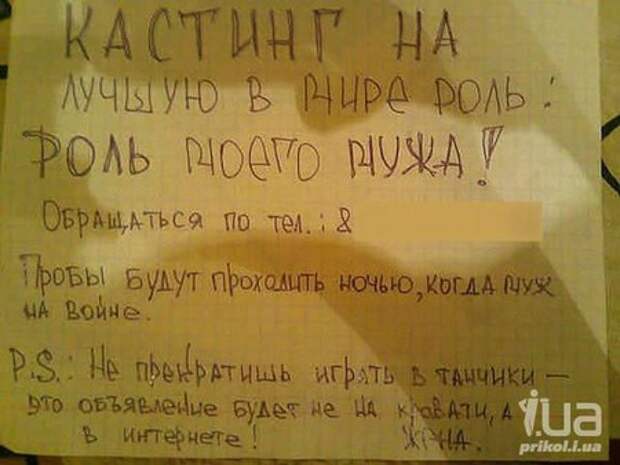 КАСТИНГ НА
ЛУЧШУЮ В МИРЕ РОЛЬ:
РОЛЬ МОЕГО МУЖА!
Обращаться по тел.: 8
Пробы будут проходить ночью, когда муж
на войне.
P.S.: Не прекратишь играть в танчики –
это объявление будет не на кровати, а
в интернете! ЖЕНА.
i.ua
prikol.i.ua